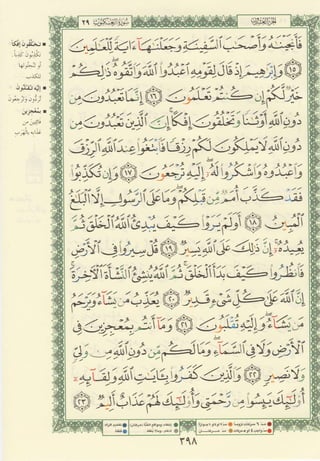 سورة العنكبوت ٢٩
فَأَنجَيْنَٰهُ وَأَصْحَٰبَ ٱلسَّفِينَةِ وَجَعَلْنَٰهَآ ءَايَةً لِّلْعَٰلَمِينَ
١٥ وَإِبْرَٰهِيمَ إِذْ قَالَ لِقَوْمِهِ ٱعْبُدُوا۟ ٱللَّهَ وَٱتَّقُوهُ ذَٰلِكُمْ
خَيْرٌ لَّكُمْ إِن كُنتُمْ تَعْلَمُونَ ١٦ إِنَّمَا تَعْبُدُونَ مِن
دُونِ ٱللَّهِ أَوْثَٰنًا وَتَخْلُقُونَ إِفْكًا إِنَّ ٱلَّذِينَ تَعْبُدُونَ مِن
دُونِ ٱللَّهِ لَا يَمْلِكُونَ لَكُمْ رِزْقًا فَٱبْتَغُوا۟ عِندَ ٱللَّهِ ٱلرِّزْقَ
وَٱعْبُدُوهُ وَٱشْكُرُوا۟ لَهُۥٓ إِلَيْهِ تُرْجَعُونَ ١٧ وَإِن تُكَذِّبُوا۟
فَقَدْ كَذَّبَ أُمَمٌ مِّن قَبْلِكُمْ وَمَا عَلَى ٱلرَّسُولِ إِلَّا ٱلْبَلَٰغُ
ٱلْمُبِينُ ١٨ أَوَلَمْ يَرَوْا۟ كَيْفَ يُبْدِئُ ٱللَّهُ ٱلْخَلْقَ ثُمَّ
يُعِيدُهُۥٓ إِنَّ ذَٰلِكَ عَلَى ٱللَّهِ يَسِيرٌ ١٩ قُلْ سِيرُوا۟ فِى ٱلْأَرْضِ
فَٱنظُرُوا۟ كَيْفَ بَدَأَ ٱلْخَلْقَ ثُمَّ ٱللَّهُ يُنشِئُ ٱلنَّشْأَةَ ٱلْءَاخِرَةَ
إِنَّ ٱللَّهَ عَلَىٰ كُلِّ شَىْءٍ قَدِيرٌ ٢٠ يُعَذِّبُ مَن يَشَآءُ وَيَرْحَمُ
مَن يَشَآءُ وَإِلَيْهِ تُقْلَبُونَ ٢١ وَمَآ أَنتُم بِمُعْجِزِينَ فِى
ٱلْأَرْضِ وَلَا فِى ٱلسَّمَآءِ وَمَا لَكُم مِّن دُونِ ٱللَّهِ مِن وَلِىٍّ
وَلَا نَصِيرٍ ٢٢ وَٱلَّذِينَ كَفَرُوا۟ بِـَٔايَٰتِ ٱللَّهِ وَلِقَآئِهِۦٓ
أُو۟لَٰٓئِكَ يَئِسُوا۟ مِن رَّحْمَتِى وَأُو۟لَٰٓئِكَ لَهُمْ عَذَابٌ أَلِيمٌ ٢٣
٣٩٨